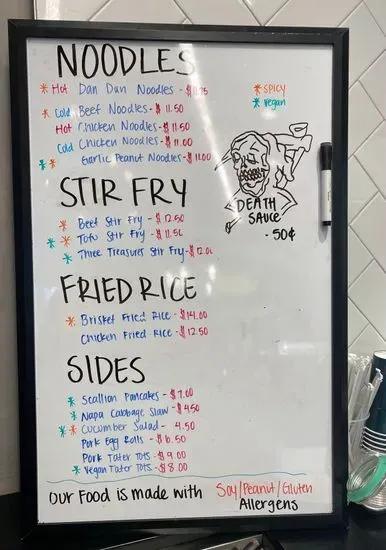 NOODLES
* Hot Dan Dan Noodles - $11.75
* SPICY
* Vegan
* Cold Beef Noodles - $11.50
Hot Chicken Noodles - $11.50
Cold Chicken Noodles - $11.00
** Garlic Peanut Noodles - $11.00
DEATH
SAUCE
- 50¢
STIR FRY
* Beef Stir Fry - $12.50
** Tofu Stir Fry - $11.50
* Three Treasures Stir Fry - $12.00
FRIED RICE
* Brisket Fried Rice - $14.00
Chicken Fried Rice - $12.50
SIDES
* Scallion Pancakes - $7.00
* Napa Cabbage Slaw - $4.50
** Cucumber Salad - 4.50
Pork Egg Rolls - $6.50
Pork Tater Tots - $9.00
* Vegan Tater Tots - $8.00
Our Food is made with Soy/Peanut/Gluten
Allergens